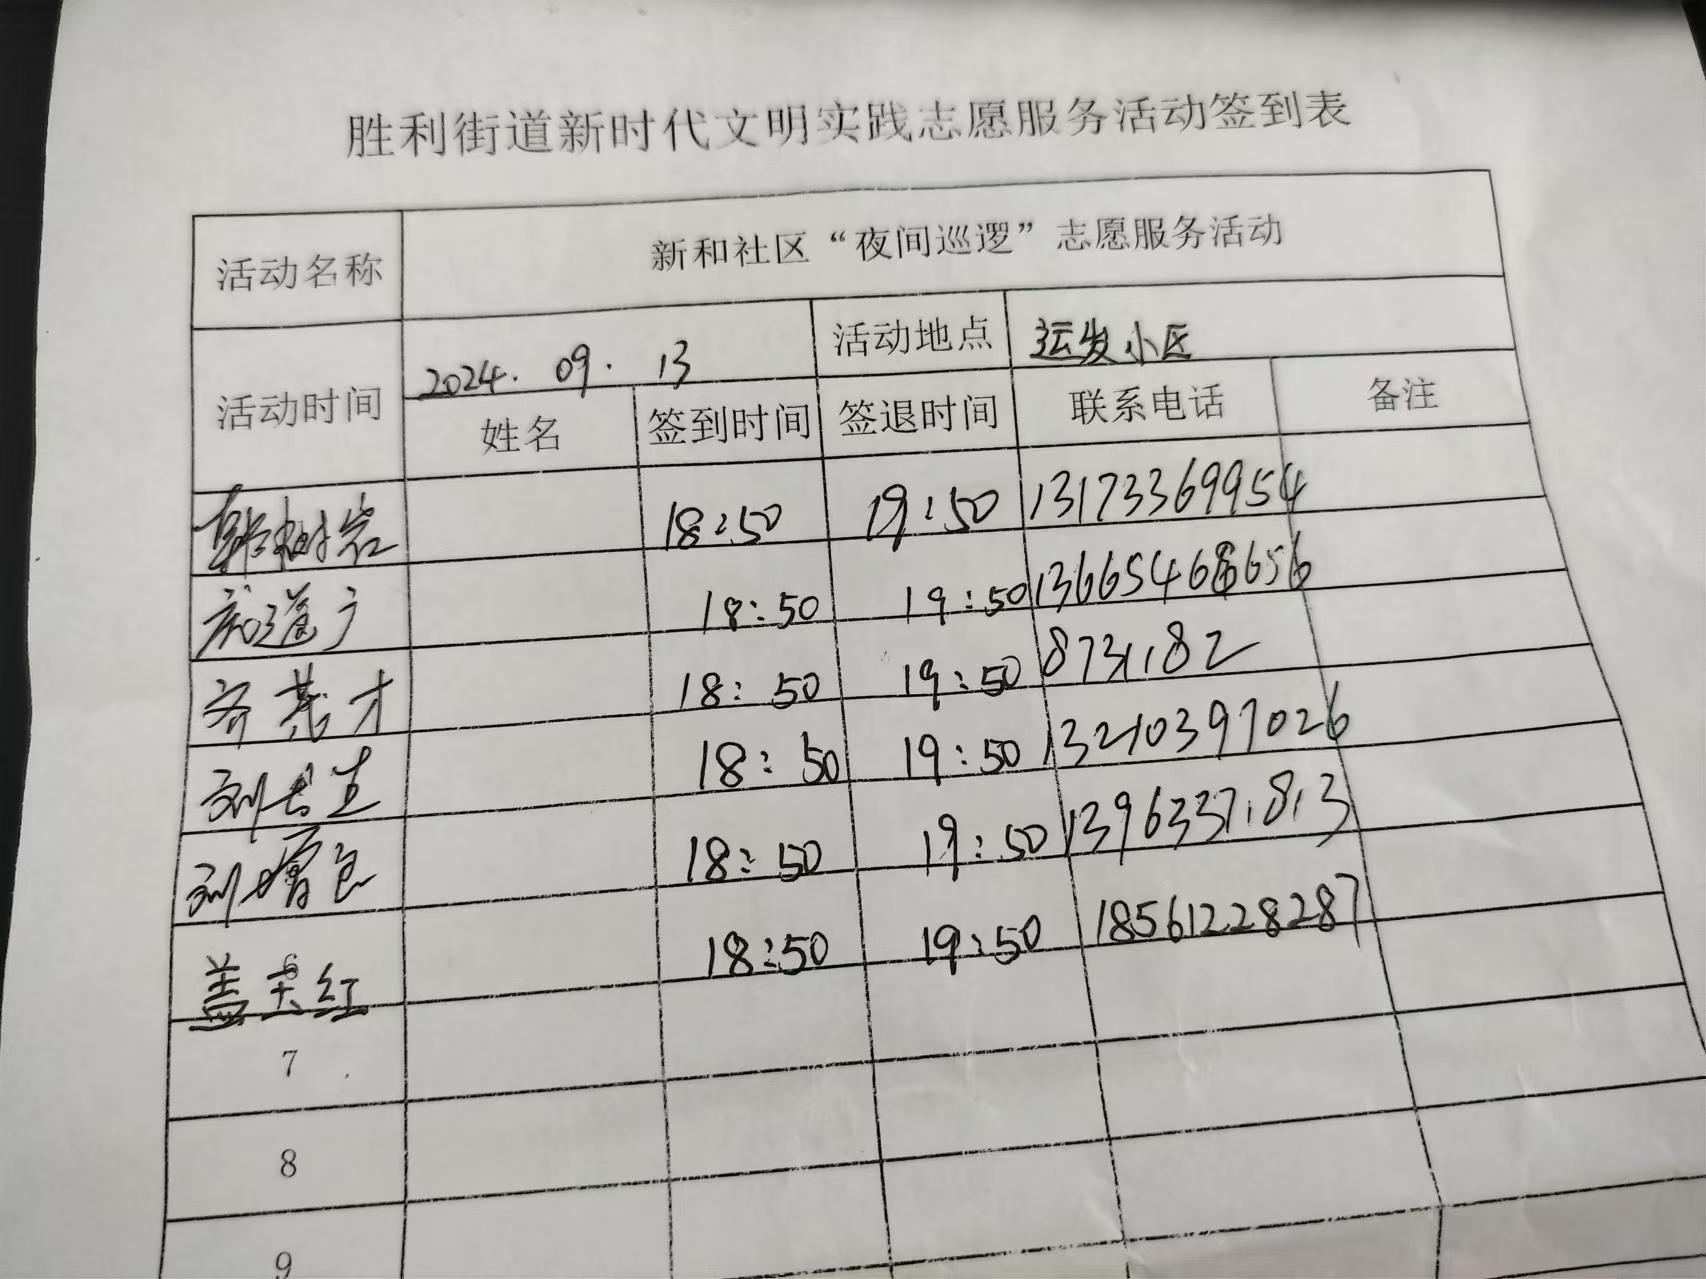 胜利街道新时代文明实践志愿服务活动签到表
活动名称 新和社区“夜间巡逻”志愿服务活动
活动时间 2024.09.13 活动地点 运发小区
姓名 签到时间 签退时间 联系电话 备注
韩树岩 18:50 19:50 13173369954
道广 18:50 19:50
齐其才 18:50 19:50 8731182
刘长生 18:50 19:50 13210397026
刘增包 18:50 19:50 13963371813
盖夫红 6 18:50 19:50 18561228287
7
8
9